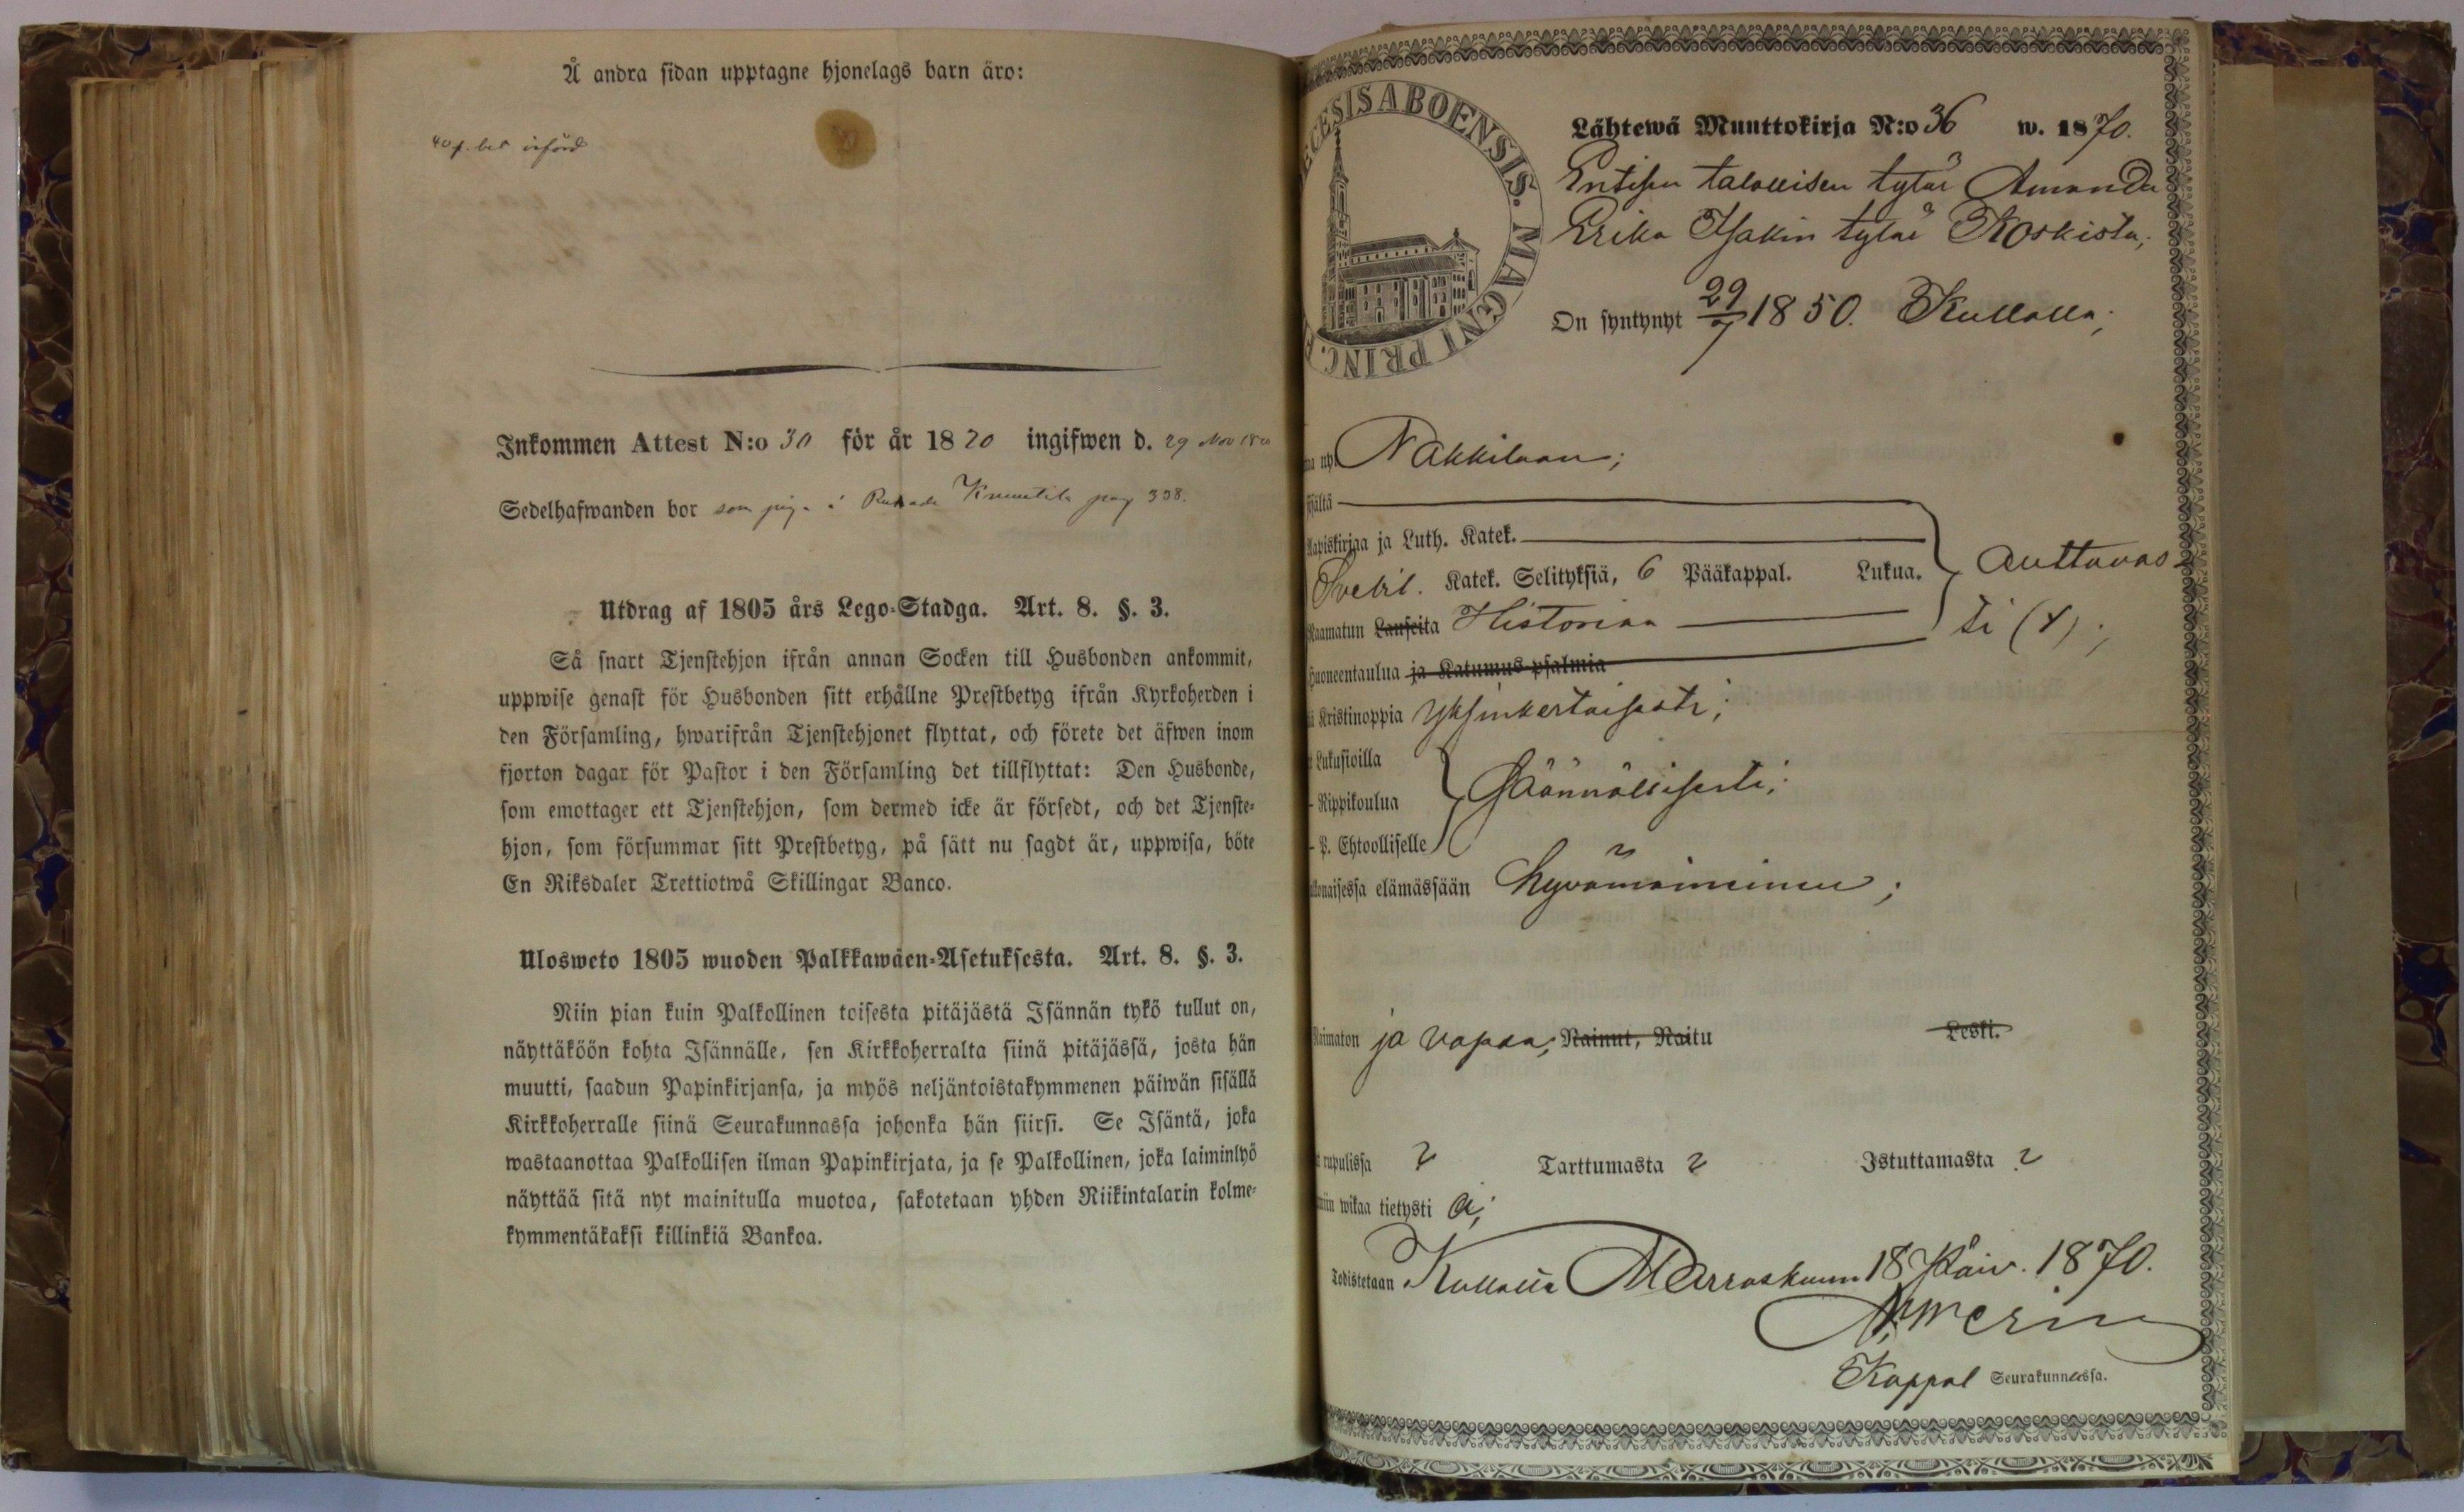 Å andra sidan upptagne hjonelags barn äro:
40 p. bet införd
Inkommen Attest N:o 30 för år 1870 ingifwen d. 29 Nov 1870
Sedelhafwanden bor som piga i Knuutila pag 338.
Utdrag af 1805 års Lego-Stadga. Art. 8. §. 3.
Så snart Tjenstehjon ifrån annan Socken till Husbonden ankommit,
uppwise genast för Husbonden sitt erhållne Prestbetyg ifrån Kyrkoherden i
den Församling, hwarifrån Tjenstehjonet flyttat, och förete det äfwen inom
fjorton dagar för Pastor i den Församling det tillflyttat: Den Husbonde,
som emottager ett Tjenstehjon, som dermed icke är försedt, och det Tjenste-
hjon, som försummar sitt Prestbetyg, på sätt nu sagdt är, uppwisa, böte
En Riksdaler Trettiotwå Skillingar Banco.
Ulosweto 1805 wuoden Palkkawäen-Asetuksesta. Art. 8. §. 3.
Niin pian kuin Palkollinen toisesta pitäjästä Isännän tykö tullut on,
näyttäköön kohta Isännälle, sen Kirkkoherralta siinä pitäjässä, josta hän
muutti, saadun Papinkirjansa, ja myös neljäntoistakymmenen päiwän sisällä
Kirkkoherralle siinä Seurakunnassa johonka hän siirsi. Se Isäntä, joka
wastaanottaa Palkollisen ilman Papinkirjata, ja se Palkollinen, joka laiminlyö
näyttää sitä nyt mainitulla muotoa, sakotetaan yhden Riikintalarin kolme-
kymmentäkaksi killinkiä Bankoa.
ECESIS ABOENSIS. MAGNI PRINC.
Lähtewä Muuttokirja N:o 36 w. 1870.
Entisen talollisen tytär Amanda
Erika Isakin tytär Koskista;
On syntynyt 29/7 1850. Kullalla;
na nyt Nakkilaan;
sisältä
Aapiskirjaa ja Luth. Katek.
Svebil. Katek. Selityksiä, 6 Pääkappal. Lukua. auttavas
Raamatun Lauseita Historiaa ti (+);
Huoneentaulua ja Katumus-psalmia
ä Kristinoppia Yksinkertaisesti;
Lukusioilla
- Rippikoulua Säännöllisesti;
- P. Ehtoolliselle
ulkonaisessa elämässään hyvämaineinen;
Naimaton ja vapaa; Nainut, Naitu Leski.
rupulissa ? Tarttumasta ? Istuttamasta ?
miin wikaa tietysti ei;
Todistetaan Kullalla Marraskuun 18 Päiv. 1870.
Kappal Seurakunnassa.